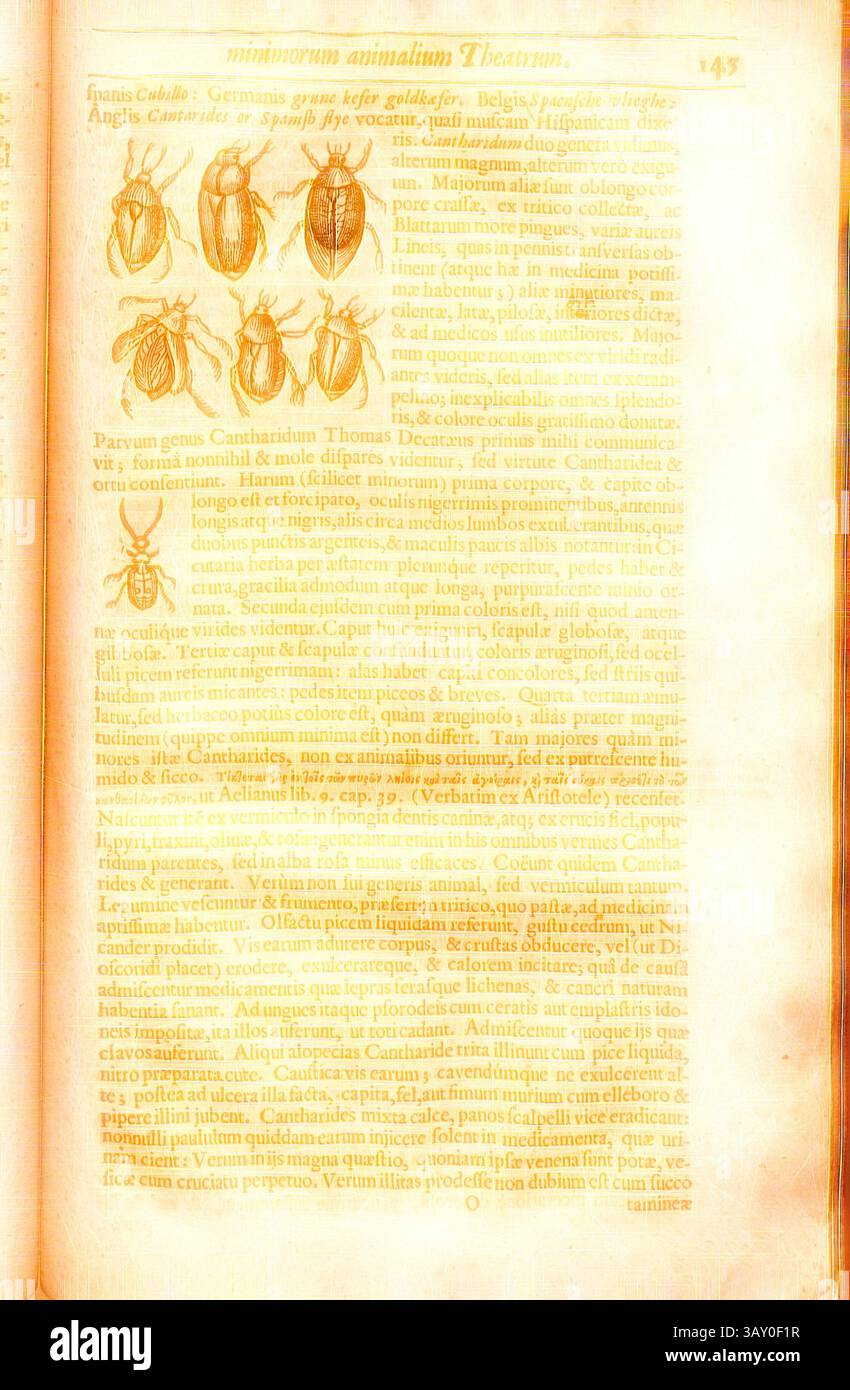 minimorum animalium Theatrum. 145
ſpanis Cubillo: Germanis grune kefer goldkæfer. Belgis Spaenſche vlieghe:
Anglis Cantarides or Spaniſh flye vocatur, quaſi muſcam Hiſpanicam dixe-
ris. Cantharidum duo genera vidimus,
alterum magnum, alterum verò exigu-
um. Majorum aliæ ſunt oblongo cor-
pore craſſæ, ex tritico collectæ, ac
Blattarum more pingues, variæ aureis
Lineis, quas in pennis tranſverſas ob-
tinent (atque hæ in medicina potiſſi-
mæ habentur;) aliæ minutiores, ma-
cilentæ, latæ, piloſæ, inferiores dictæ,
& ad medicos uſus inutiliores. Majo-
rum quoque non omnes ex viridi radi-
antes videris, ſed alias item ex xeram-
pelino; inexplicabilis omnes ſplendo-
ris, & colore oculis gratiſſimo donatæ.
Parvum genus Cantharidum Thomas Decatæus primus mihi communica-
vit; formâ nonnihil & mole diſpares videntur, ſed virtute Cantharidea &
ortu conſentiunt. Harum (ſcilicet minorum) prima corpore, & capite ob-
longo eſt et forcipato, oculis nigerrimis prominentibus, antennis
longis atque nigris, alis circa medios lumbos extuberantibus, quæ
duobus punctis argenteis, & maculis paucis albis notantur: in Ci-
cutaria herba per æſtatem plerunque reperitur, pedes habet &
crura, gracilia admodum atque longa, purpuraſcente minio or-
nata. Secunda ejuſdem cum prima coloris eſt, niſi quod anten-
næ oculique virides videntur. Caput huic exiguum, ſcapulæ globoſæ, atque
gibboſæ. Tertiæ caput & ſcapulæ confunduntur, coloris æruginoſi, ſed ocel-
luli picem referunt nigerrimam: alas habet capiti concolores, ſed ſtriis qui-
buſdam aureis micantes: pedes item piceos & breves. Quarta tertiam æmu-
latur, ſed herbaceo potius colore eſt, quàm æruginoſo; alias præter magni-
tudinem (quippe omnium minima eſt) non differt. Tam majores quàm mi-
nores iſtæ Cantharides, non ex animalibus oriuntur, ſed ex putreſcente hu-
mido & ſicco.
ut Aelianus lib. 9. cap. 39. (Verbatim ex Ariſtotele) recenſet.
Naſcuntur itē ex vermiculo in ſpongia dentis caninæ, atq; ex erucis fici, popu-
li, pyri, fraxini, olivæ, & roſæ: generantur enim in his omnibus vermes Cantha-
ridum parentes, ſed in alba roſa minus efficaces. Coëunt quidem Cantha-
rides & generant. Verùm non ſui generis animal, ſed vermiculum tantum.
Legumine veſcuntur & frumento, præſertim tritico, quo paſtæ, ad medicinam
aptiſſimæ habentur. Olfactu picem liquidam referunt, guſtu cedrum, ut Ni-
cander prodidit. Vis earum adurere corpus, & cruſtas obducere, vel (ut Di-
oſcoridi placet) erodere, exulcerareque, & calorem incitare; quâ de cauſâ
admiſcentur medicamentis quæ lepras feraſque lichenas, & cancri naturam
habentia ſanant. Ad ungues itaque pſorodeis cum ceratis aut emplaſtris ido-
neis impoſitæ, ita illos auferunt, ut toti cadant. Admiſcentur quoque ijs quæ
clavos auferunt. Aliqui alopecias Cantharide trita illinunt cum pice liquida,
nitro præparata cute. Cauſtica vis earum; cavendúmque ne exulcerent al-
te; poſtea ad ulcera illa facta, capita, fel, aut fimum murium cum elleboro &
pipere illini jubent. Cantharides mixta calce, panos ſcalpelli vice eradicant:
nonnulli paululum quiddam earum injicere ſolent in medicamenta, quæ uri-
nam cient: Verum in ijs magna quæſtio, quoniam ipſæ venena ſunt potæ, ve-
ſicæ cum cruciatu perpetuo. Verum illitas prodeſſe non dubium eſt cum ſucco
O taminæ
alamy
Image ID: 3AY0F1R
www.alamy.com